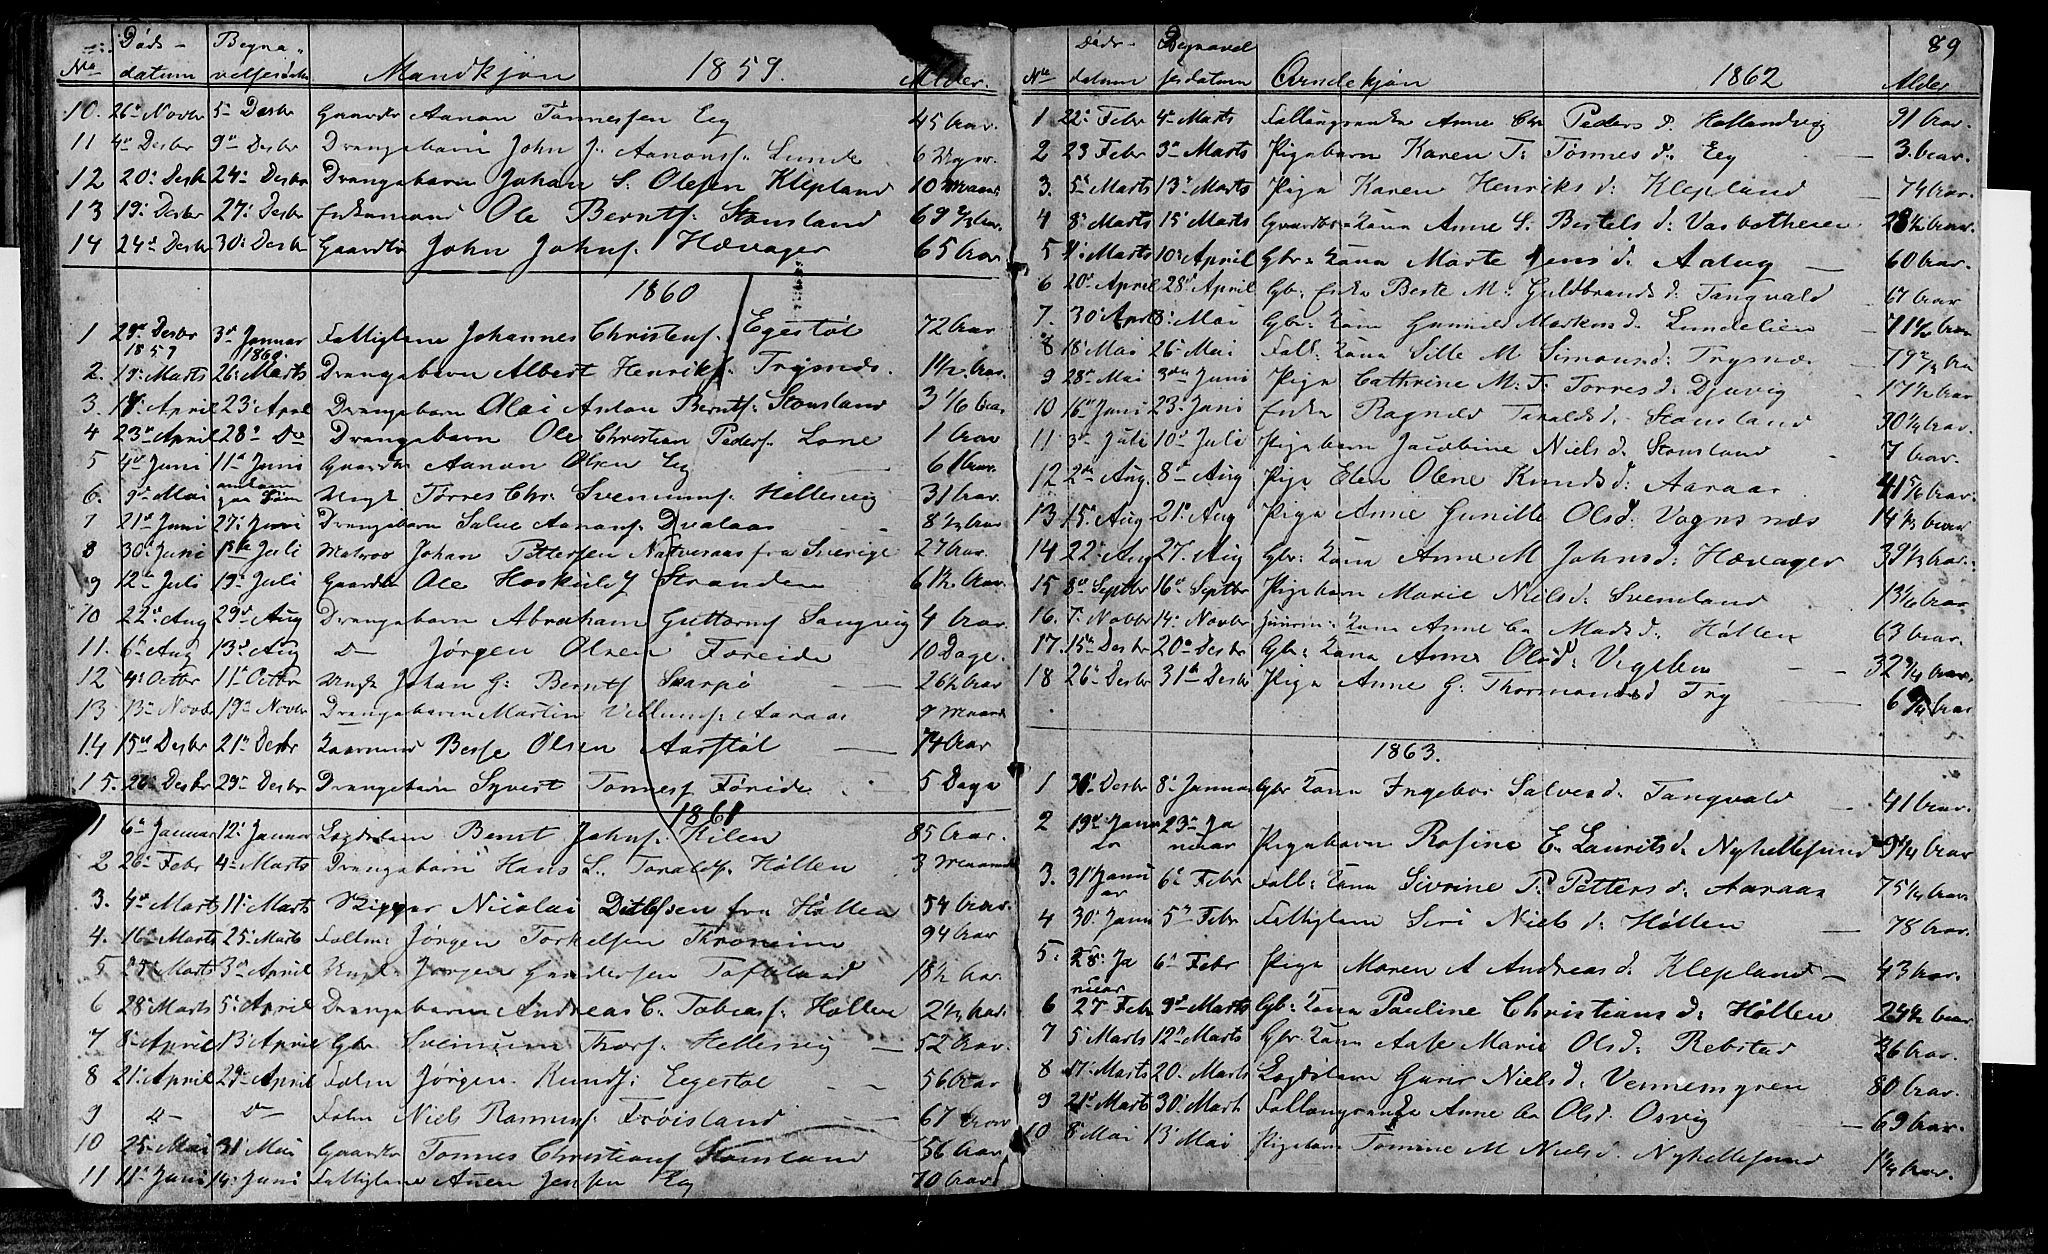 Døds- Begra-
No datum velsesdatum Mandkjøn 1859. Alder.
10. 26de Novbr 5te Desbr Gaardbr Aanon Tønnessen Eeg 45 Aar.
11 4de Desbr 9de Desbr Drengebarn John J. Aanons. Lunde 6 Uger.
12 20: Desb 24de Desbr Drengebarn Johan S: Olesen Klepland 10 Maaned
13 19: Desbr 27: Desbr Enkemand Ole Bernts: Stousland 69 2/3 Aar.
14 24de Desbr 30: Desbr Gaardbr John Johns. Hævager 65 Aar.
1860
1 29de Desbr 1859 3de Januar 1860. Fattiglem Johannes Christens. Egestøl 72 Aar
2. 19: Marts 26: Marts Drengebarn Albert Henriks. Trysnes. 1 1/2 Aar.
3. 18: April 23: April Drengebarn Olai Anton Bernts: Stousland 3 1/6 Aar
4 23de April 28de Do Drengebarn Ole Christian Peders. Lone 1 Aar
5 4de Juni 11te Juni Gaardbr Aanon Olsen Eeg 61 Aar.
6. 9de Mai Ungk Tørres Chr. Svennums. Hellesvig 31 Aar.
7 21de Juni 27: Juni Drengebarn Salve Aanons. Dvalaas 8 1/2 Aar
8 30: Juni 1ste Juli Matros Johan Pettersen Natvesaas fra Sverige 27 Aar.
9 12te Juli 19: Juli Gaardbr Ole Hoskulds. Stranden 61 1/2 Aar.
10 22: Aug 29de Aug Drengebarn Abraham Guttorms Langvig 4 Aar.
11. 6te Aug 13de Aug D- Jørgen Olsen Foreide 10 Dage.
12 4: Octbr 11te Octbr Ungk Johan G: Bernts. Skarpø 26 1/2 Aar
13 13de Novbr 19de Novbr Drengebarn Martin Villums. Aaraas 9 Maaned
14 15de Desbr 21de Desbr Kaarmand Berge Olsen Aarstøl 74 Aar
15. 26de Desbr 29de Desbr Drengebarn Syvert Tønnes. Føreide 5 Dage
1861
1 6te Januar 12: Januar Lægdslem Bernt Johns. Kilen 85 Aar.
2 26: Febr 4de Marts Drengebarn Hans L. Toralds. Høllen 3 Maaned
3. 4de Marts 11te Marts Rigger Nicolai Ditlefsen fra Høllen 54 Aar.
4. 16de Marts 25de Marts Fallm: Jørgen Torkelsen Throneim 94 Aar
5 25: Marts 3de April Ungk: Jørgen Gundersen Tofteland 18 1/2 Aar.
6 28de Marts 5te April Drengebarn Andreas C. Tobias. Høllen 2 1/2 Aar.
7 8de April 13: April Gbr Svennum Thors. Hellesvig 52 Aar.
8 21: April 29de April Falm Jørgen Knuds. Egestøl 56 Aar
9 D- D- Falm Niels Rasmus. Frøisland 67 Aar
10 25: Mai 31 Mai Gaardbr Tønnes Christians. Stousland 56 Aar.
11 11te Juni 14: Juni Fattiglem Auen Jensen Eeg 70 Aar
89
Døds- Begravel
No datum sesdatum Qvindekjøn 1862 Alder
1 22: Febr 4de Marts Fallængsenke Anne Chr Peders d. Hollandsvig 91 Aar.
2 23 Febr 3de Marts Pigebarn Karen T: Tønnes d. Eeg 3. Aar.
3. 5te Marts 13de Marts Pige Karen Henriks d. Klepland 74 Aar.
4 8de Marts 15 Marts Gaardbr: Kona Anne S. Bertels d: Vasbotheien 28 1/2 Aar.
5 4: Marts 10: April Gbr: Kona Marte Jens d. Aalug 60 Aar.
6 20de April 28de April Gb: Enke Berte M: Guldbrands d: Tangvald 67 Aar
7. 30 April 8: Mai Gbr: Kona Gunnild Markus d: Lundelien 71 1/2 Aar
8 18: Mai 26: Mai Fall: Kona Sille M Simons d: Trysnæs 79 2/3 Aar
9 28de Mai 3die Juni Pige Cathrine M: T: Torres d. Djuvig 17 1/2 Aar
10 16de Juni 23. Juni Enke Ragnild Taralds d: Stousland 30 1/4 Aar.
11 3de Juli 10de Juli Pigebarn Jacobine Niels d: Stousland 7 Aar.
12 2de Aug. 8de Aug Pige Elen Olene Knuds d: Aaraas 41 5/6 Aar.
13 15: Aug 21de Aug Pige Anne Gunille Ols d: Vognsnæs 14 1/3 Aar
14 22: Aug 27: Aug Gbr: Kona Anne M Johns d: Hævager 39 1/3 Aar.
15 8de Septbr 16de Septbr Pigebarn Marie Niels d. Svenneland 13 1/6 Aar
16. 7: Novbr 14: Novbr Kona Anne Ca Mads d. Høllen 63 Aar.
17. 15de Desbr 20de Desbr Gb: Kona Anne Ols d: Vigeben 32 3/4 Aar.
18 26: Desbr 31te Desbr Pige Anne G. Thormonds d Try 6 3/4 Aar
1863.
1 30: Desbr 8: Januar Gbr Kona Ingebor Salves d. Tangvald 41 Aar.
2 19de Januar 23de Januar Pigebarn Rosine E. Laurits d. Nyhellesund 9 1/4 Aar
3. 31 Januar 6te Febr Fall: Kona Sivrine P. Petters d. Aaraas 75 1/2 Aar
4 30: Janu 5te Febr Fattiglem Siri Niels d: Høllen 78 Aar.
5. 28: Januar 6te Febr Pige Maren A Andreas d. Klepland 43 Aar.
6 27 Febr 9de Marts Gb: Kona Pauline Christians d: Høllen 24 1/2 Aar
7 5 Marts 12te Marts Gbr Kona Aase Marie Ols d: Rebstad 36 Aar.
8 17: Marts 20. Marts Lægdslem Guro Niels d: Vennemyren 80 Aar.
9 21de Marts 30: Marts Fallængsenke Anne Ca Ols d. Osvig 69 Aar.
10 8: Mai 13: Mai Pigebarn Tomine M Niels d. Nyhellesund 1 1/4 Aar.